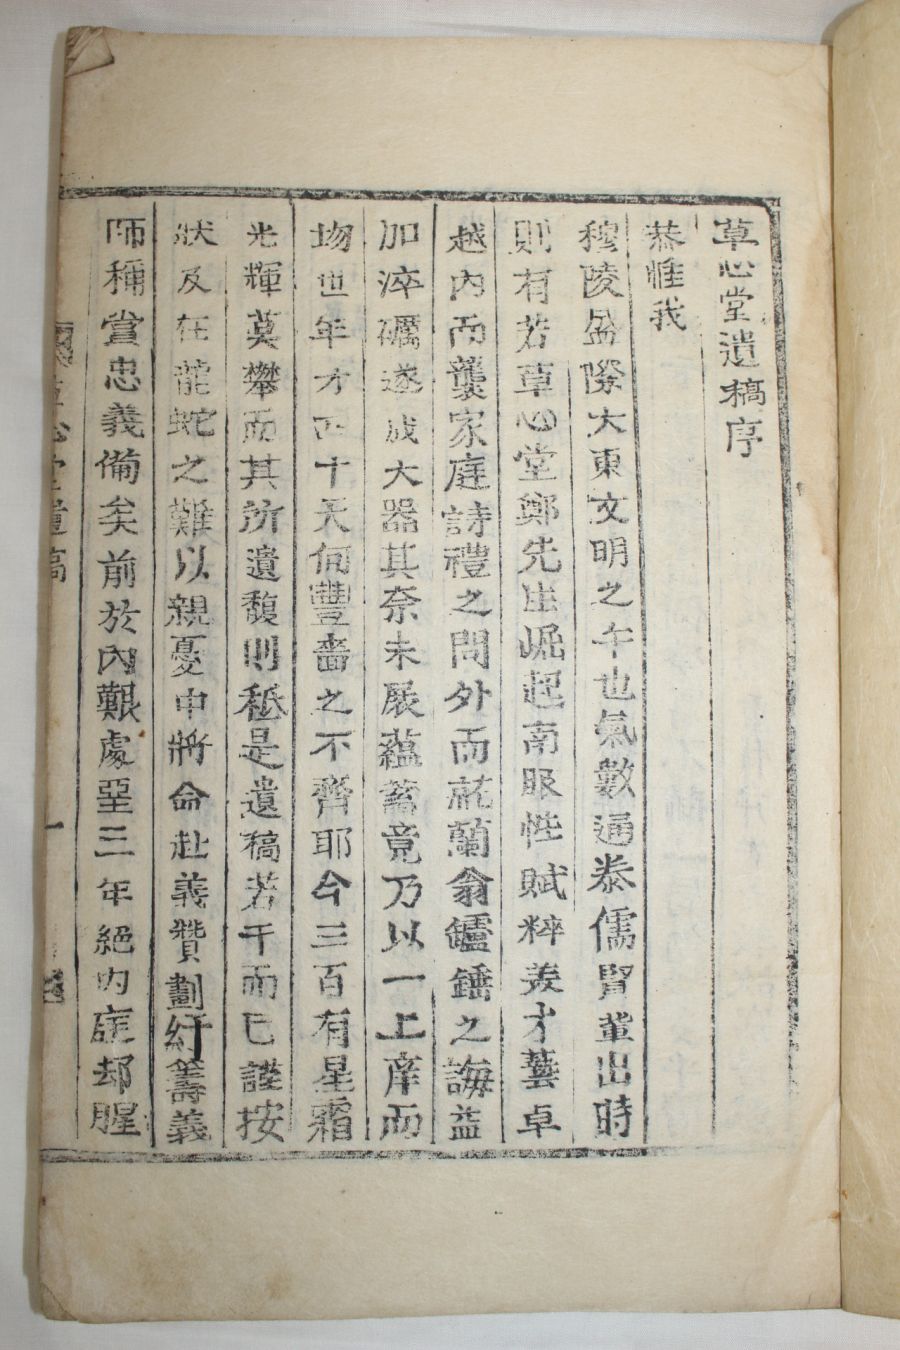 草心堂遺稿序
恭惟我
穆陵盛際大東文明之午也氣數通泰儒賢輩出時
則有若草心堂鄭先生崛起南服性賦粹美才藝卓
越內而襲家庭詩禮之聞外而蘭翁鑪錘之誨益
加淬礪遂成大器其奈未展蘊蓄竟乃以一上庠而
圽世年才四十天何豐嗇之不齊耶今三百有星霜
光輝莫攀而其所遺馥則秪是遺稿若干而已謹按
狀及在龍蛇之難以親憂中將命赴義贊劃紆籌義
師稱賞忠義備矣前於內艱處堊三年絕內庭却腥
草心堂遺稿
一